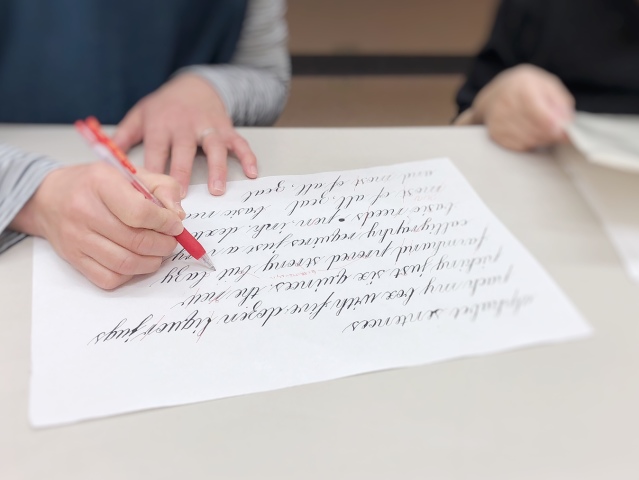 alphabet sentences
pack my box with five dozen liquor jugs
picking just six quinces, the new
farmhand proved strong but lazy
calligraphy requires just a
basic needs: pen, ink, dext
most of all, zeal basic nee
and most of all, zeal